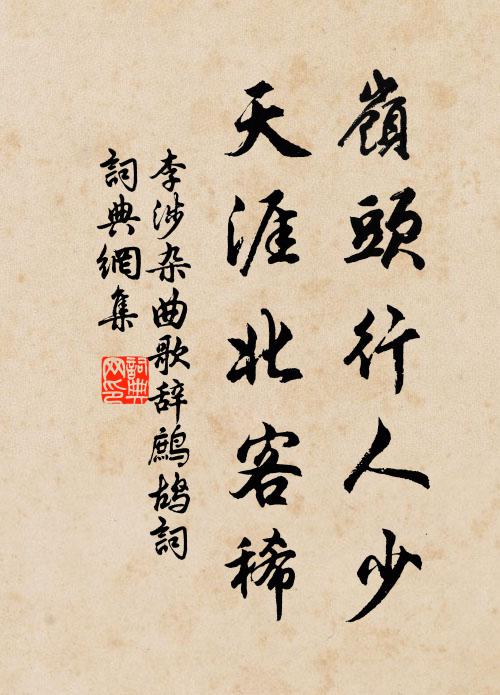 嶺頭行人少
天涯北客稀
李涉杂曲歌辞鹧鸪詞
詞典網集
詞典
网印